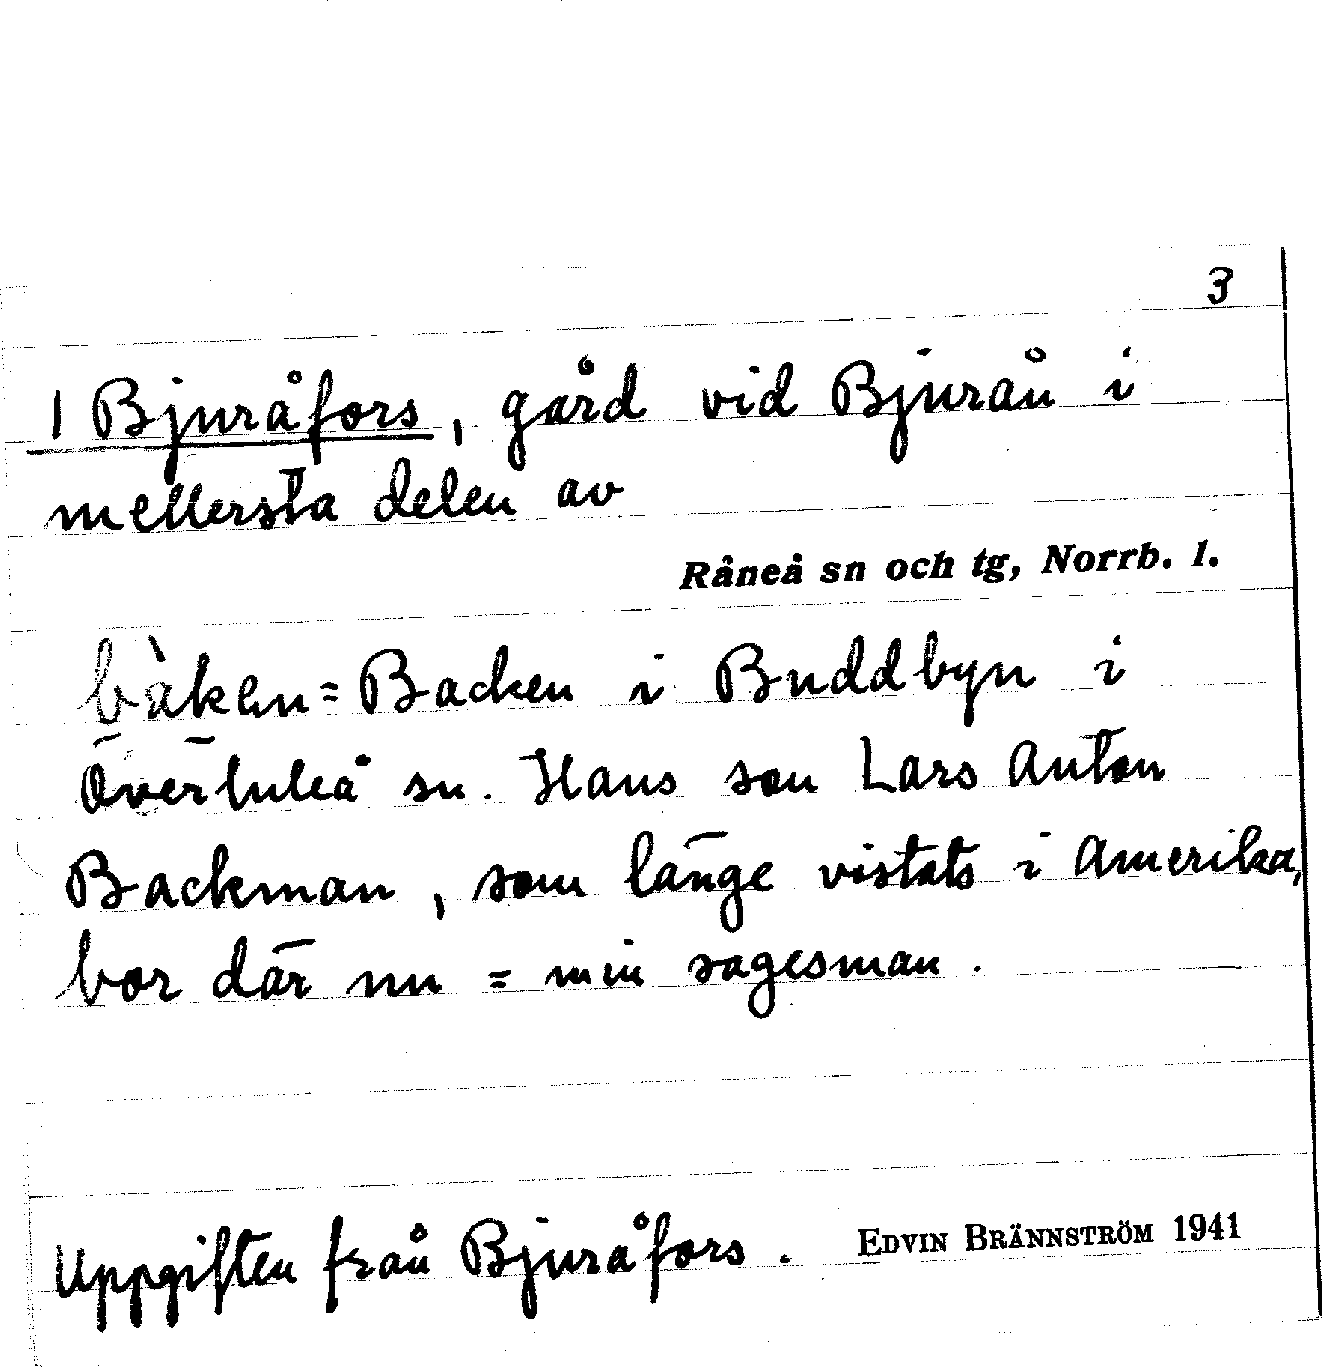 3
1 Bjuråfors, gård vid Bjurån i
mellersta delen av
Råneå sn och tg, Norrb. l.
bàken = Backen i Buddbyn i
Överluleå sn. Hans son Lars Anton
Backman, som länge vistats i Amerika,
bor där nu = min sagesman.
Uppgiften från Bjuråfors. EDVIN BRÄNNSTRÖM 1941